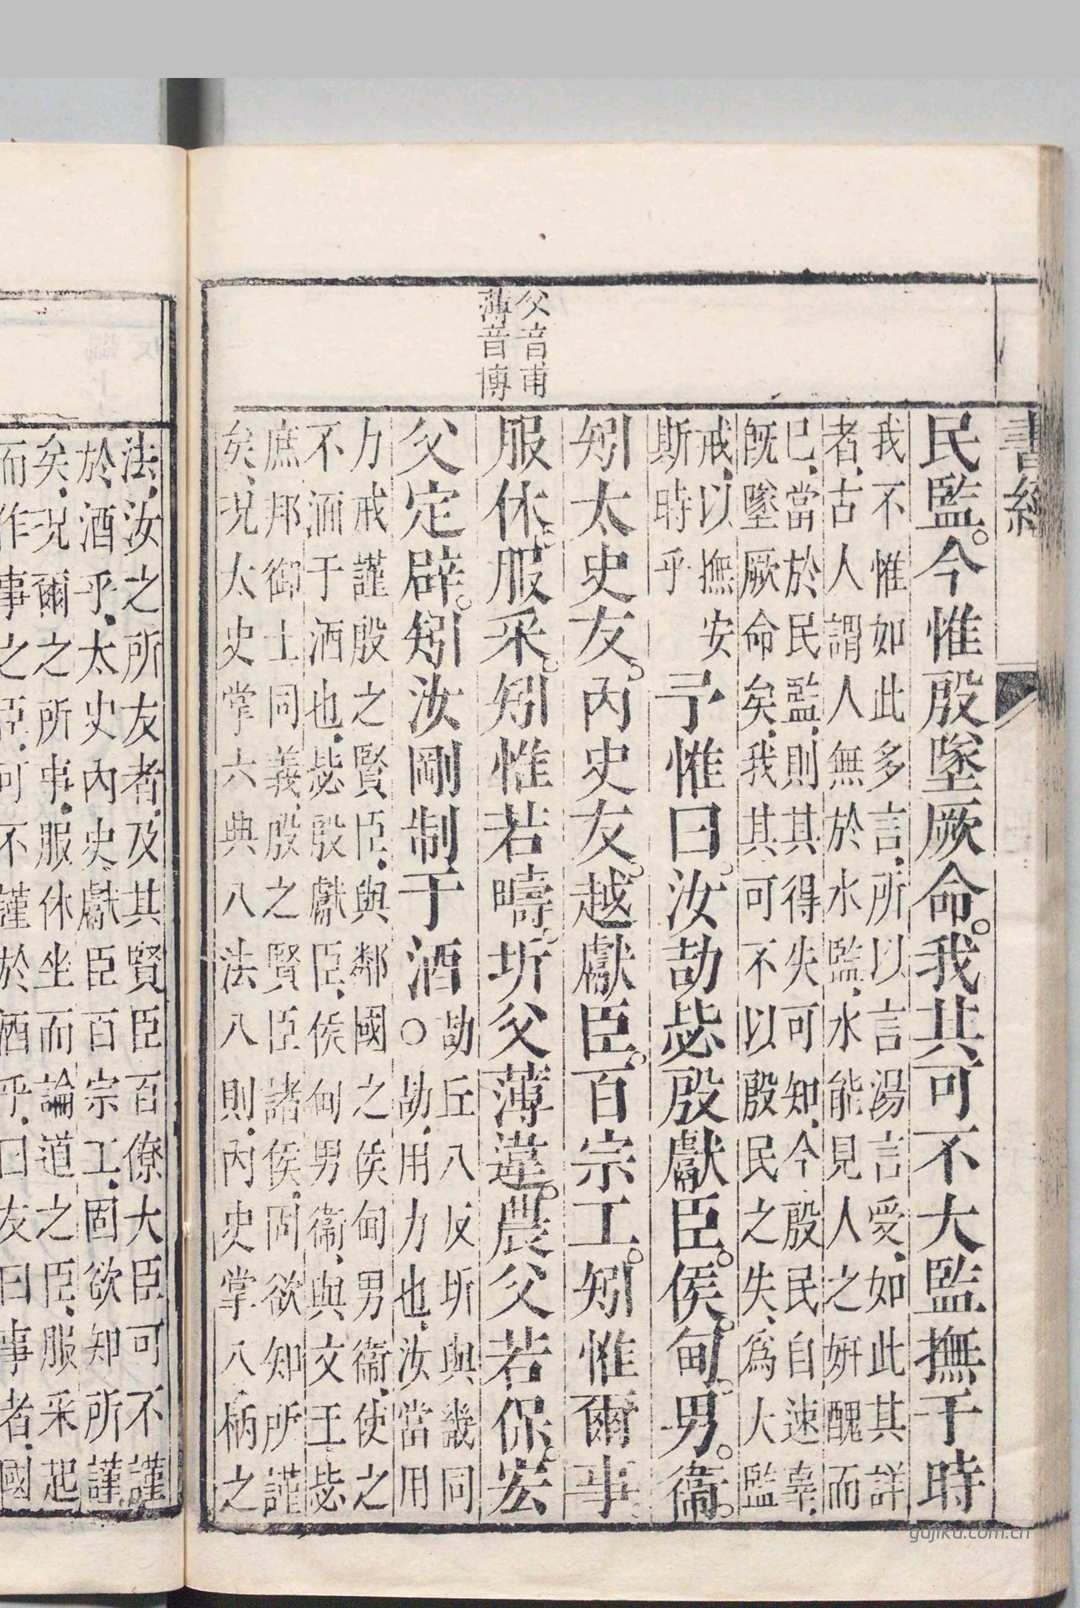 書經
民監。今惟殷墜厥命。我其可不大監撫于時
我不惟如此多言,所以言湯言受,如此其詳
者,古人謂人無於水監,水能見人之妍醜而
已,當於民監,則其得失可知,今殷民自速辜,
旣墜厥命矣,我其可不以殷民之失,爲大監
戒,以撫安
斯時乎
予惟曰。汝劼毖殷獻臣。侯。甸。男。衞。
矧太史友。內史友。越獻臣。百宗工。矧惟爾事
父音甫
薄音博
服休。服采。矧惟若疇。圻父薄違。農父若保。宏
父定辟。矧汝剛制于酒
○劼丘八反圻與畿同
劼,用力也,汝當用
力戒謹殷之賢臣,與鄰國之侯甸男衞,使之
不湎于酒也,毖殷獻臣,侯甸男衞,與文王毖
庶邦御士同義,殷之賢臣諸侯,固欲知所謹
矣,況太史掌六典八法八則,內史掌八柄之
法,汝之所友者,及其賢臣百僚大臣可不謹
於酒乎,太史內史獻臣百宗工,固欲知所謹
矣,況爾之所事,服休坐而論道之臣,服采起
而作事之臣,可不謹於酒乎,曰友曰事者,國
gujiku.com.cn